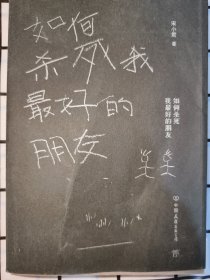 如何
杀死我
最好的
朋友
宋小君 著
如何杀死
我最好的朋友